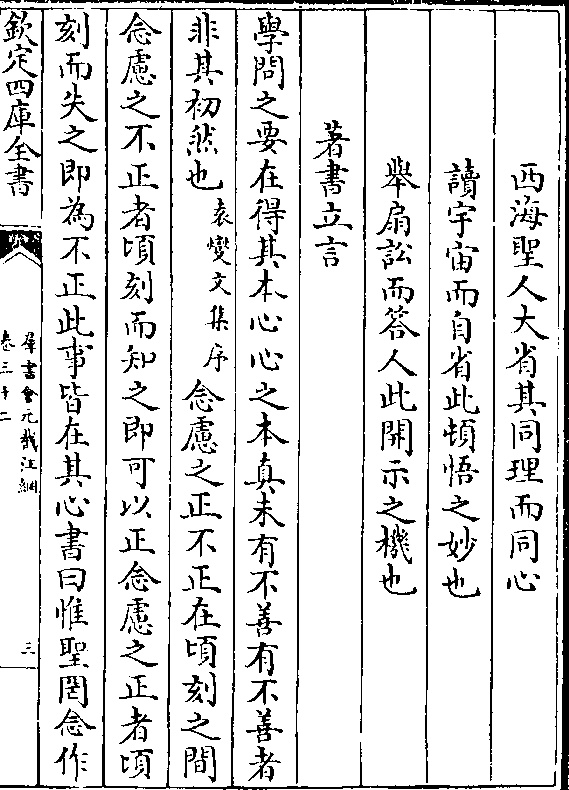 西海聖人大省其同理而同心
讀宇宙而自省此頓悟之妙也
舉扇訟而答人此開示之機也
著書立言
學問之要在得其本心心之本真未有不善有不善者
非其初然也袁燮文集序念慮之正不正在頃刻之間
念慮之不正者頃刻而知之即可以正念慮之正者頃
刻而失之即為不正此事皆在其心書曰惟聖罔念作
欽定四庫全書
羣書會元截江網
卷三十二
三